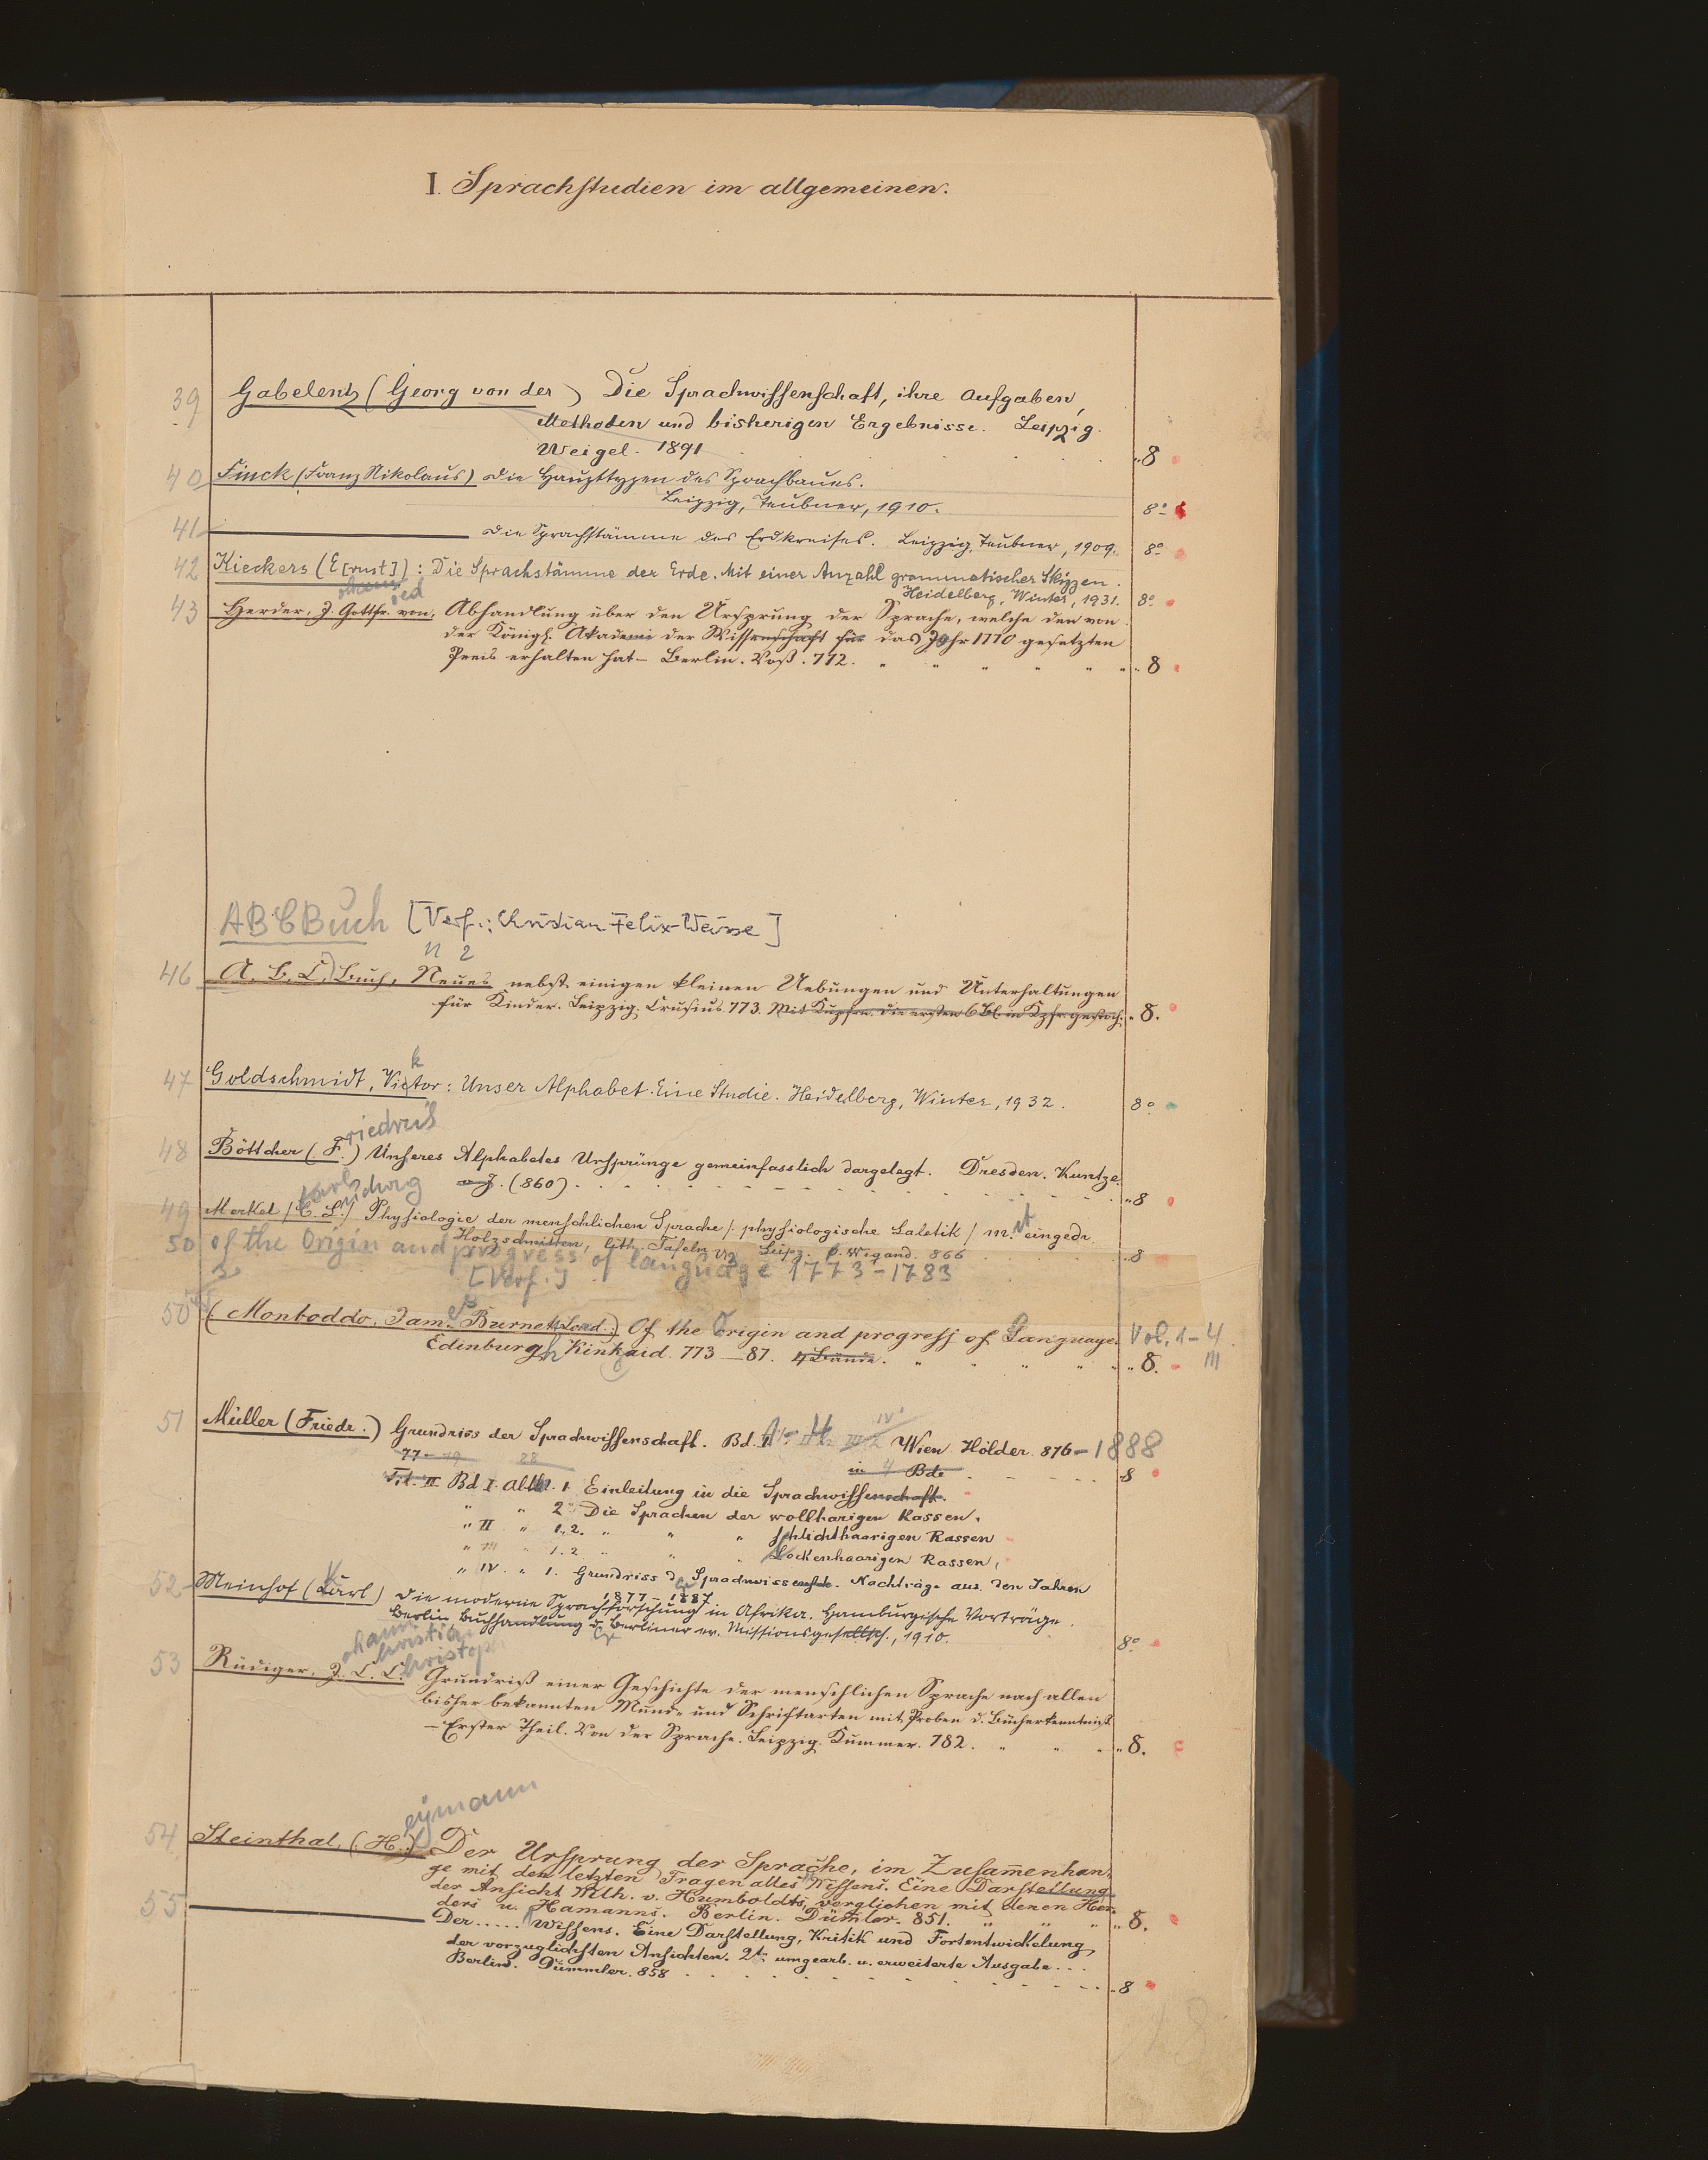 I. Sprachstudien im allgemeinen.
39 Gabelentz (Georg von der) Die Sprachwissenschaft, ihre Aufgaben,
Methoden und bisherigen Ergebnisse. Leipzig.
Weigel. 1891 8
40 Finck (Franz Nikolaus) Die Haupttypen des Sprachbaues.
Leipzig, Teubner, 1910. 8°
41 Die Sprachstämme des Erdkreises. Leipzig, Teubner, 1909. 8°
42 Kieckers (E[rnst]) : Die Sprachstämme der Erde. Mit einer Anzahl grammatischer Skizzen.
Heidelberg, Winter, 1931. 8°
ohann ied
43 Herder, J. Gottfr. von, Abhandlung über den Ursprung der Sprache, welche den von
der Königl. Akademi der Wissenschaft für das Jahr 1770 gesetzten
Preis erhalten hat – Berlin. Voß. 772. 8
ABCBuch [Verf.: Christian Felix Weisse]
n 2
46 A. B. C. Buch, Neues nebst einigen kleinen Uebungen und Unterhaltungen
für Kinder. Leipzig. Crusius 773. Mit Kupfern. Die ersten 6 Bl. in Kpfr. gestoch. 8.
k
47 Goldschmidt, Victor : Unser Alphabet. Eine Studie. Heidelberg, Winter, 1932. 8°
riedrich
48 Böttcher (F.) Unseres Alphabetes Ursprünge gemeinfasslich dargelegt. Dresden. Kuntze
o. J. (860) 8
Karl udwig
49 Merkel (C. L.) Physiologie der menschlichen Sprache (physiologische Laletik) m. it eingedr.
Holzschnitten, lith. Tafeln Leipz. O. Wigand. 866 8
50 of the Origin and progress of language 1773-1783
[Verf.]
es
50 (Monboddo, Jam. Burnett Lord.) Of the Origin and progress of Language. Vol. 1–4
Edinburgh Kinkaid. 773 – 87. 4 Bände. 8. III
51 Müller (Friedr.) Grundriss der Sprachwissenschaft. Bd. I Wien Hölder. 876 – 1888
in 4 Bde 8
Bd I. Abth. 1 Einleitung in die Sprachwissenschaft.
" " 2 Die Sprachen der wollharigen Rassen.
" II " 1. 2. " " " schlichthaarigen Rassen
" III " 1. 2 " " " Lockenhaarigen Rassen,
" IV. " 1. Grundriss d. Sprachwissensch. Nachträge aus den Jahren
1877 – 1887
52 Meinhof (Carl) Die moderne Sprachforschung in Afrika. Hamburgische Vorträge.
Berlin, Buchhandlung d. Berliner ev. Missionsgesellsch., 1910. 8°
ohann hristian hristoph
53 Rüdiger, J. C. C. Grundriß einer Geschichte der menschlichen Sprache nach allen
bisher bekannten Mund- und Schriftarten mit Proben d. Bücherkenntniß
– Erster Theil. Von der Sprache. Leipzig. Kummer. 782. 8.
eymann
54 Steinthal, (H.) Der Ursprung der Sprache, im Zusam̄enhan-
ge mit den letzten Fragen alles Wissens. Eine Darstellung
der Ansicht Wilh. v. Humboldts, verglichen mit denen Her-
ders u. Hamanns. Berlin. Dümler. 851. 8.
55 Der..... Wissens. Eine Darstellung, Kritik und Fortentwickelung
der vorzüglichsten Ansichten. 2t. umgearb. u. erweiterte Ausgabe...
Berlin. Dümmler. 858 8